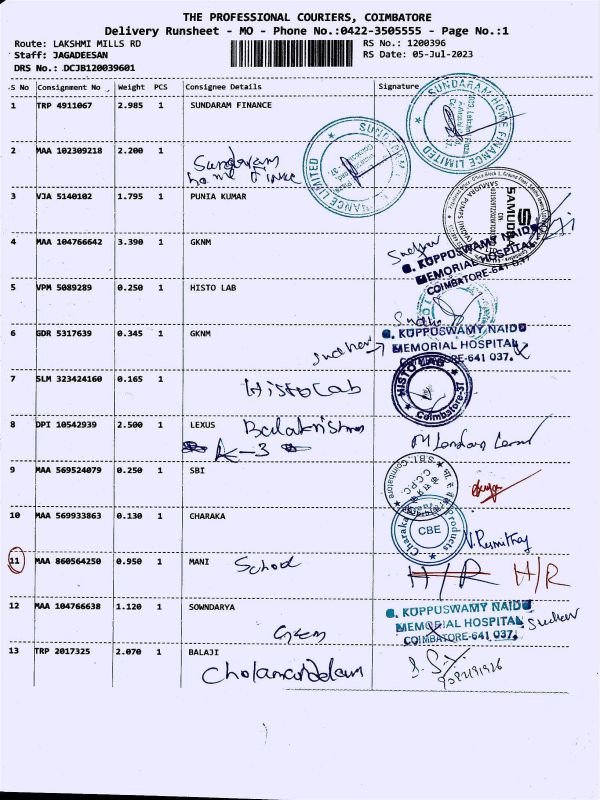 THE PROFESSIONAL COURIERS, COIMBATORE
Delivery Runsheet - MO - Phone No.:0422-3505555 - Page No.:1
Route: LAKSHMI MILLS RD RS No.: 1200396
Staff: JAGADEESAN RS Date: 05-Jul-2023
DRS No.: DCJB120039601
S No Consignment No Weight PCS Consignee Details Signature
1 TRP 4911067 2.985 1 SUNDARAM FINANCE
SUNDARAM HOME FINANCE LIMITED
2 MAA 102309218 2.200 1
Sundaram
home Finance
3 VJA 5140102 1.795 1 PUNIA KUMAR
4 MAA 104766642 3.390 1 GKNM
G. KUPPUSWAMY NAIDU
MEMORIAL HOSPITAL
COIMBATORE-641 037.
5 VPM 5089289 0.250 1 HISTO LAB
6 GDR 5317639 0.345 1 GKNM
G. KUPPUSWAMY NAIDU
MEMORIAL HOSPITAL
COIMBATORE-641 037.
7 SLM 323424160 0.165 1
Histo Lab
HISTO LAB
Coimbatore-37
8 DPI 10542939 2.500 1 LEXUS
A-3
9 MAA 569524079 0.250 1 SBI
S.B.I.
Coimbatore
10 MAA 569933863 0.130 1 CHARAKA
Charaka Products
CBE
11 MAA 860564250 0.950 1 MANI School
H/R H/R
12 MAA 104766638 1.120 1 SOWNDARYA
G. KUPPUSWAMY NAIDU
MEMORIAL HOSPITAL
COIMBATORE-641 037.
13 TRP 2017325 2.070 1 BALAJI
Cholamandalam